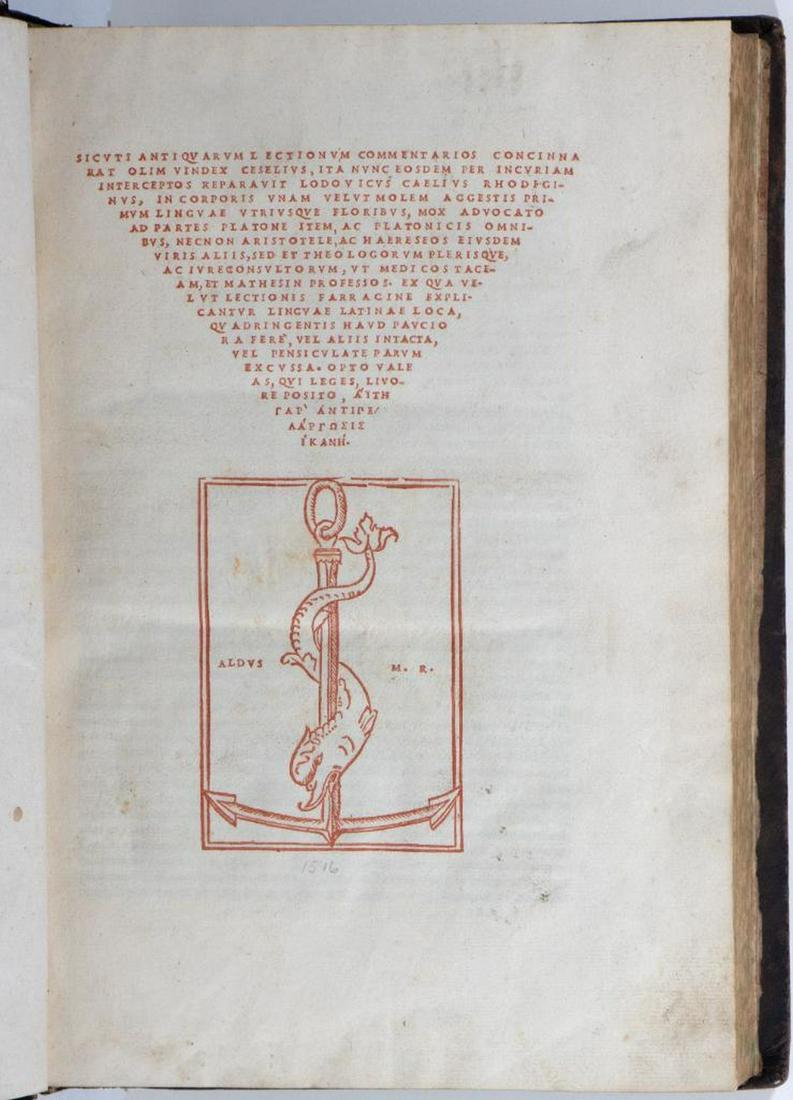 SICVTI ANTIQVARVM LECTIONVM COMMENTARIOS CONCINNA
RAT OLIM VINDEX CESELIVS, ITA NVNC EOSDEM PER INCVRIAM
INTERCEPTOS REPARAVIT LODOVICVS CAELIVS RHODIGI-
NVS, IN CORPORIS VNAM VELVT MOLEM AGGESTIS PRI-
MVM LINGVAE VTRIVSQVE FLORIBVS, MOX ADVOCATO
AD PARTES PLATONE ITEM, AC PLATONICIS OMNI-
BVS, NECNON ARISTOTELE, AC HAERESEOS EIVSDEM
VIRIS ALIIS, SED ET THEOLOGORVM PLERISQVE,
AC IVRECONSVLTORVM, VT MEDICOS TACE-
AM, ET MATHESIN PROFESSOS. EX QVA VE-
LVT LECTIONIS FARRAGINE EXPLI-
CANTVR LINGVAE LATINAE LOCA,
QVADRINGENTIS HAVD PAVCIO
RA FERE, VEL ALIIS INTACTA,
VEL PENSICVLATE PARVM
EXCVSSA. OPTO VALE
AS, QVI LEGES, LIVO-
RE POSITO, ἈΎΤΗ
ΓᾺΡ ἈΝΤΙΠΕ/
ΛΆΡΓΩΣΙΣ
ἹΚΑΝΉ.
ALDVS M. R.
1516